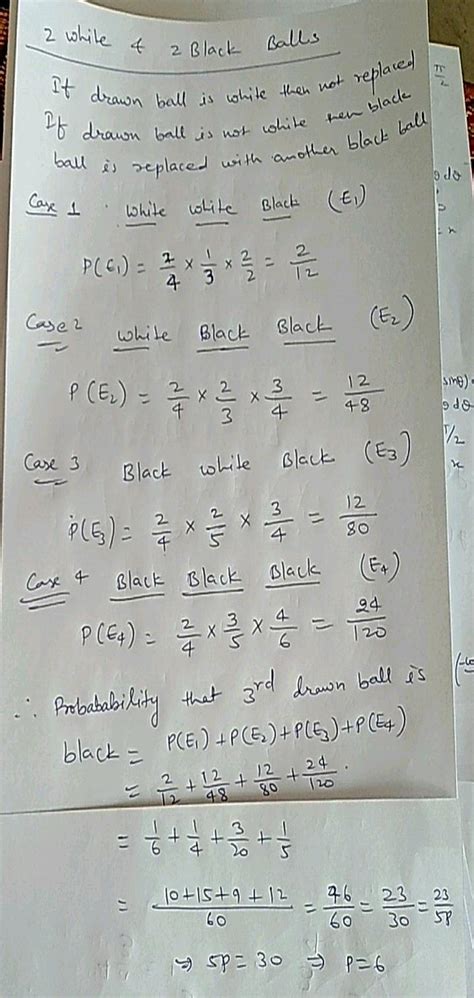 2 White & 2 Black Balls
If drawn ball is white then not replaced
If drawn ball is not white then black
ball is replaced with another black ball
Case 1 : White White Black (E₁)
P(E₁) = 2/4 × 1/3 × 2/2 = 2/12
Case 2 White Black Black (E₂)
P(E₂) = 2/4 × 2/3 × 3/4 = 12/48
Case 3 Black white Black (E₃)
P(E₃) = 2/4 × 2/5 × 3/4 = 12/80
Case 4 Black Black Black (E₄)
P(E₄) = 2/4 × 3/5 × 4/6 = 24/120
∴ Probabability that 3rd drawn ball is
black = P(E₁) + P(E₂) + P(E₃) + P(E₄)
= 2/12 + 12/48 + 12/80 + 24/120.
= 1/6 + 1/4 + 3/20 + 1/5
= 10+15+9+12/60 = 46/60 = 23/30 = 23/5P
⇒ 5P = 30 ⇒ P = 6
π/2
dθ
= x
sinθ) =
dθ
π/2
x